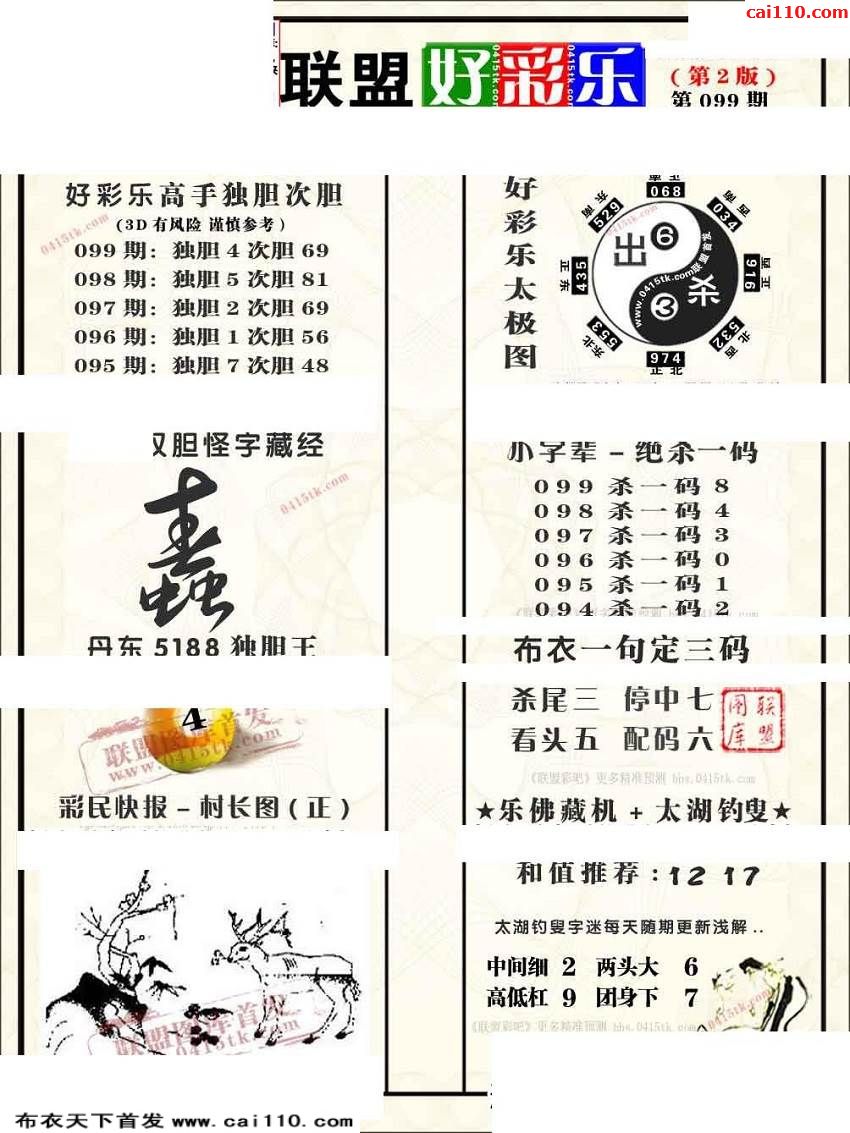 cai110.com
联盟 好彩乐
(第2版)
第 099 期
好彩乐高手独胆次胆
(3D 有风险 谨慎参考)
099 期: 独胆 4 次胆 69
098 期: 独胆 5 次胆 81
097 期: 独胆 2 次胆 69
096 期: 独胆 1 次胆 56
095 期: 独胆 7 次胆 48
0415tk.com
好彩乐太极图
068
西南 034
正西 916
西北 532
974 正北
东北 553
正东 435
东南 529
出 6
杀 3
www.0415tk.com联盟首发
双胆怪字藏经
0415tk.com
小字辈－绝杀一码
099 杀一码 8
098 杀一码 4
097 杀一码 3
096 杀一码 0
095 杀一码 1
094 杀一码 2
丹东 5188 独胆王
4
联盟图库首发
www.0415tk.com
布衣一句定三码
杀尾三 停中七
看头五 配码六
联盟图库
《联盟彩吧》更多精准预测 bbs.0415tk.com
彩民快报－村长图(正)
★乐佛藏机 + 太湖钓叟★
和值推荐:12 17
太湖钓叟字迷每天随期更新浅解..
中间细 2 两头大 6
高低杠 9 团身下 7
《联盟彩吧》更多精准预测 bbs.0415tk.com
0415tk.com
联盟图库首发
www.0415tk.com
布衣天下首发 www.cai110.com